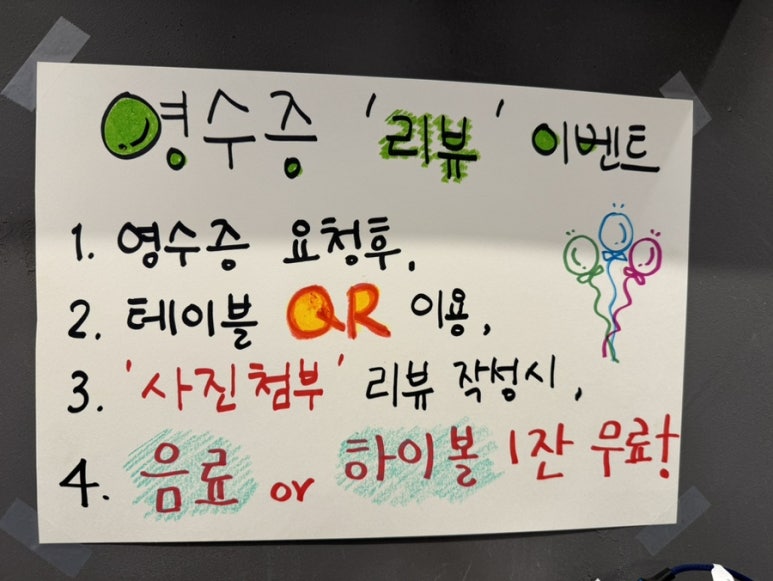 영수증 '리뷰' 이벤트
1. 영수증 요청후,
2. 테이블 QR 이용,
3. '사진첨부' 리뷰 작성시,
4. 음료 or 하이볼 1잔 무료!